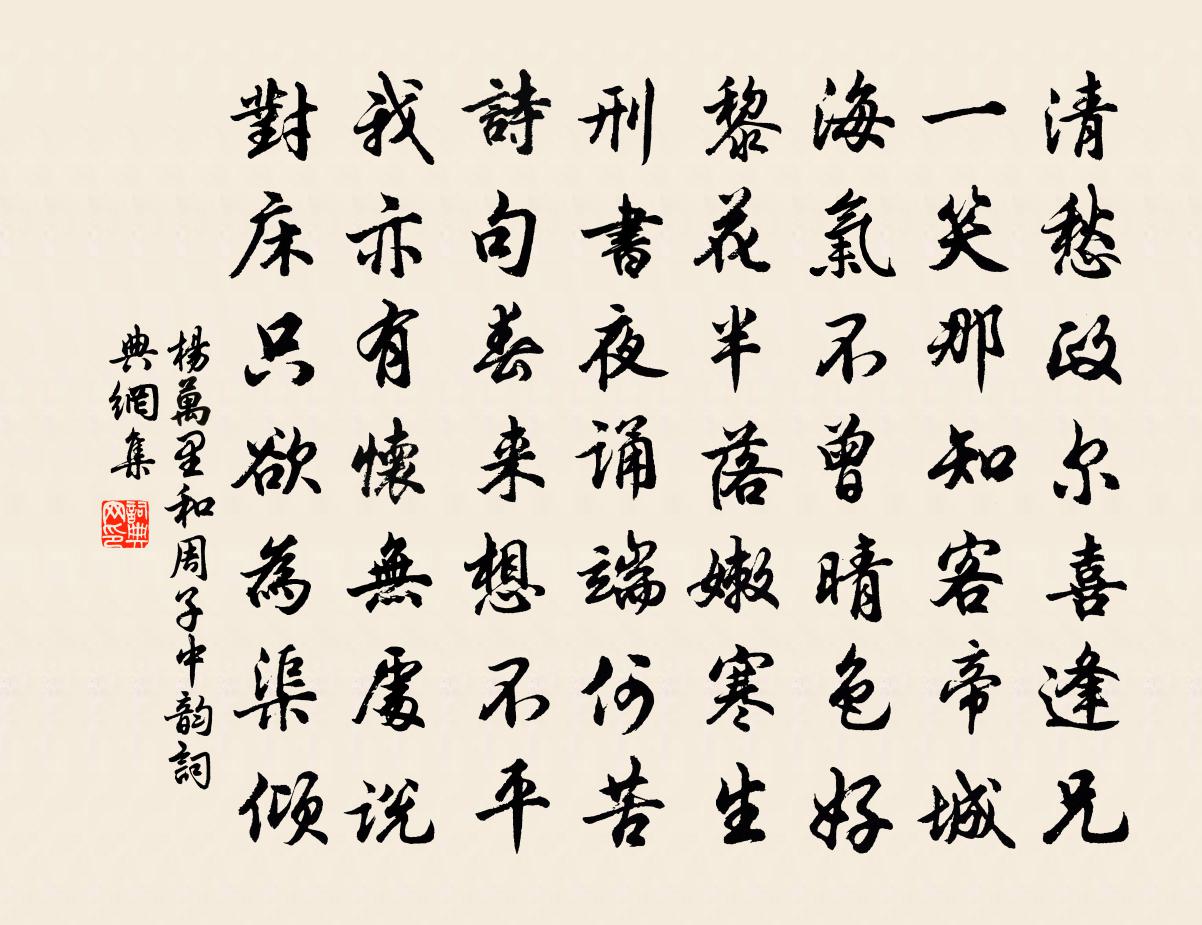 清愁政尔喜逢兄
一笑那知客帝城
海氣不曾晴色好
黎花半落嫩寒生
刑書夜誦端何苦
詩句春来想不平
我亦有懷無處説
對床只欲為渠傾
楊萬里和周子中韵詞
典網集
詞典
网印